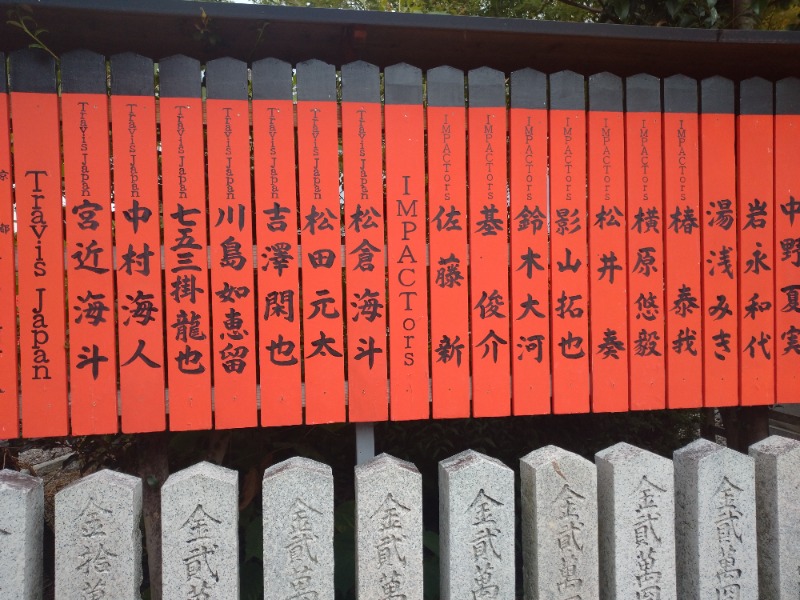 京都
Travis Japan
Travis Japan 宮近海斗
Travis Japan 中村海人
Travis Japan 七五三掛龍也
Travis Japan 川島如恵留
Travis Japan 吉澤閑也
Travis Japan 松田元太
Travis Japan 松倉海斗
IMPACTors
IMPACTors 佐藤 新
IMPACTors 基 俊介
IMPACTors 鈴木大河
IMPACTors 影山拓也
IMPACTors 松井 奏
IMPACTors 横原悠毅
IMPACTors 椿 泰我
湯浅みき
岩永和代
中野夏実
金拾萬
金貳萬
金貳萬
金貳萬
金貳萬
金貳萬
金貳萬
金貳萬